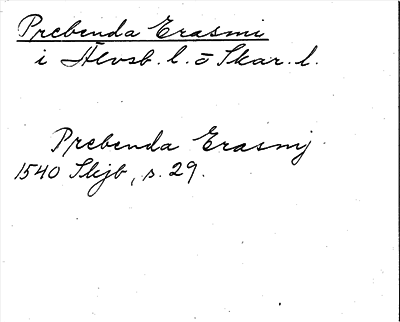 Prebenda Erasmi
i Älvsb. l. o Skar. l.
Prebenda Erasmj
1540 Skjb, s. 29.